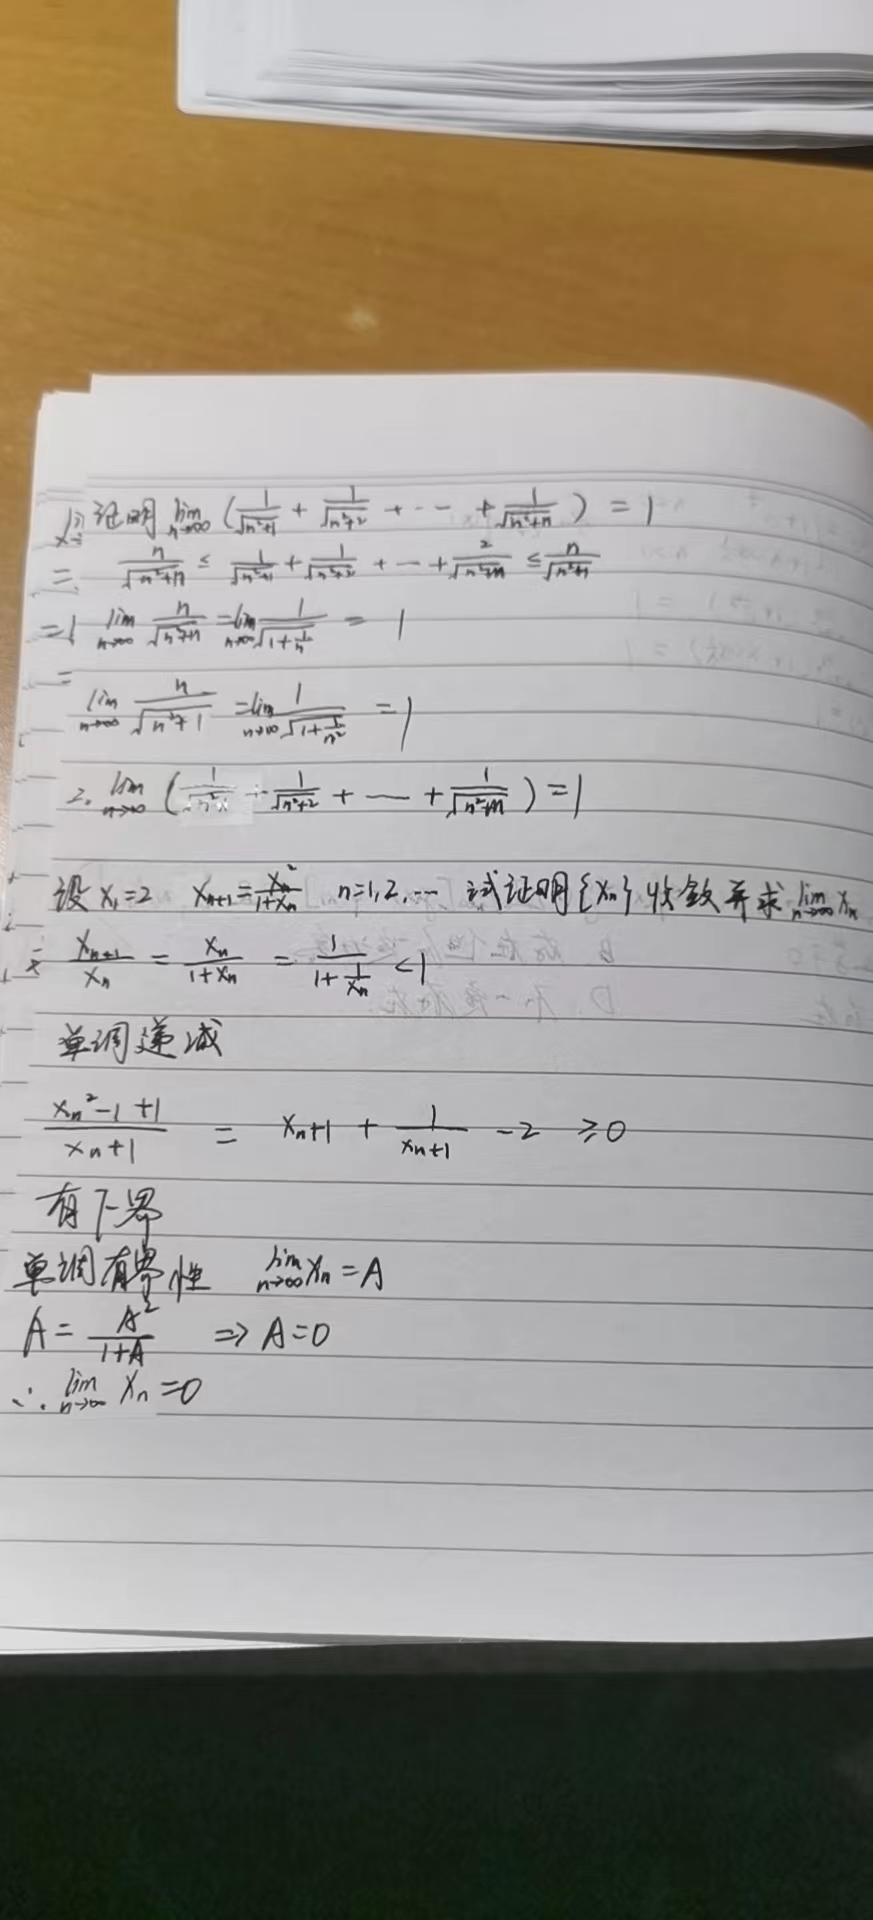 证明 lim n→∞ (1/√(n²+1) + 1/√(n²+2) + ··· + 1/√(n²+n)) = 1
= n/√(n²+n) ≤ 1/√(n²+1) + 1/√(n²+2) + ··· + 2/√(n²+n) ≤ n/√(n²+1)
lim n→∞ n/√(n²+n) = lim n→∞ 1/√(1+1/n) = 1
lim n→∞ n/√(n²+1) = lim n→∞ 1/√(1+1/n²) = 1
2. lim n→∞ ( + 1/√(n²+2) + ··· + 1/√(n²+n)) = 1
设 x₁=2 xₙ₊₁ = xₙ²/(1+xₙ) n=1,2,··· 试证明{xₙ}收敛并求 lim n→∞ xₙ
xₙ₊₁/xₙ = xₙ/(1+xₙ) = 1/(1+1/xₙ) <1
单调递减
(xₙ²-1+1)/(xₙ+1) = xₙ+1 + 1/(xₙ+1) -2 ≥0
有下界
单调有界性 lim n→∞ xₙ = A
A = A²/(1+A) ⇒ A=0
∴ lim n→∞ xₙ =0